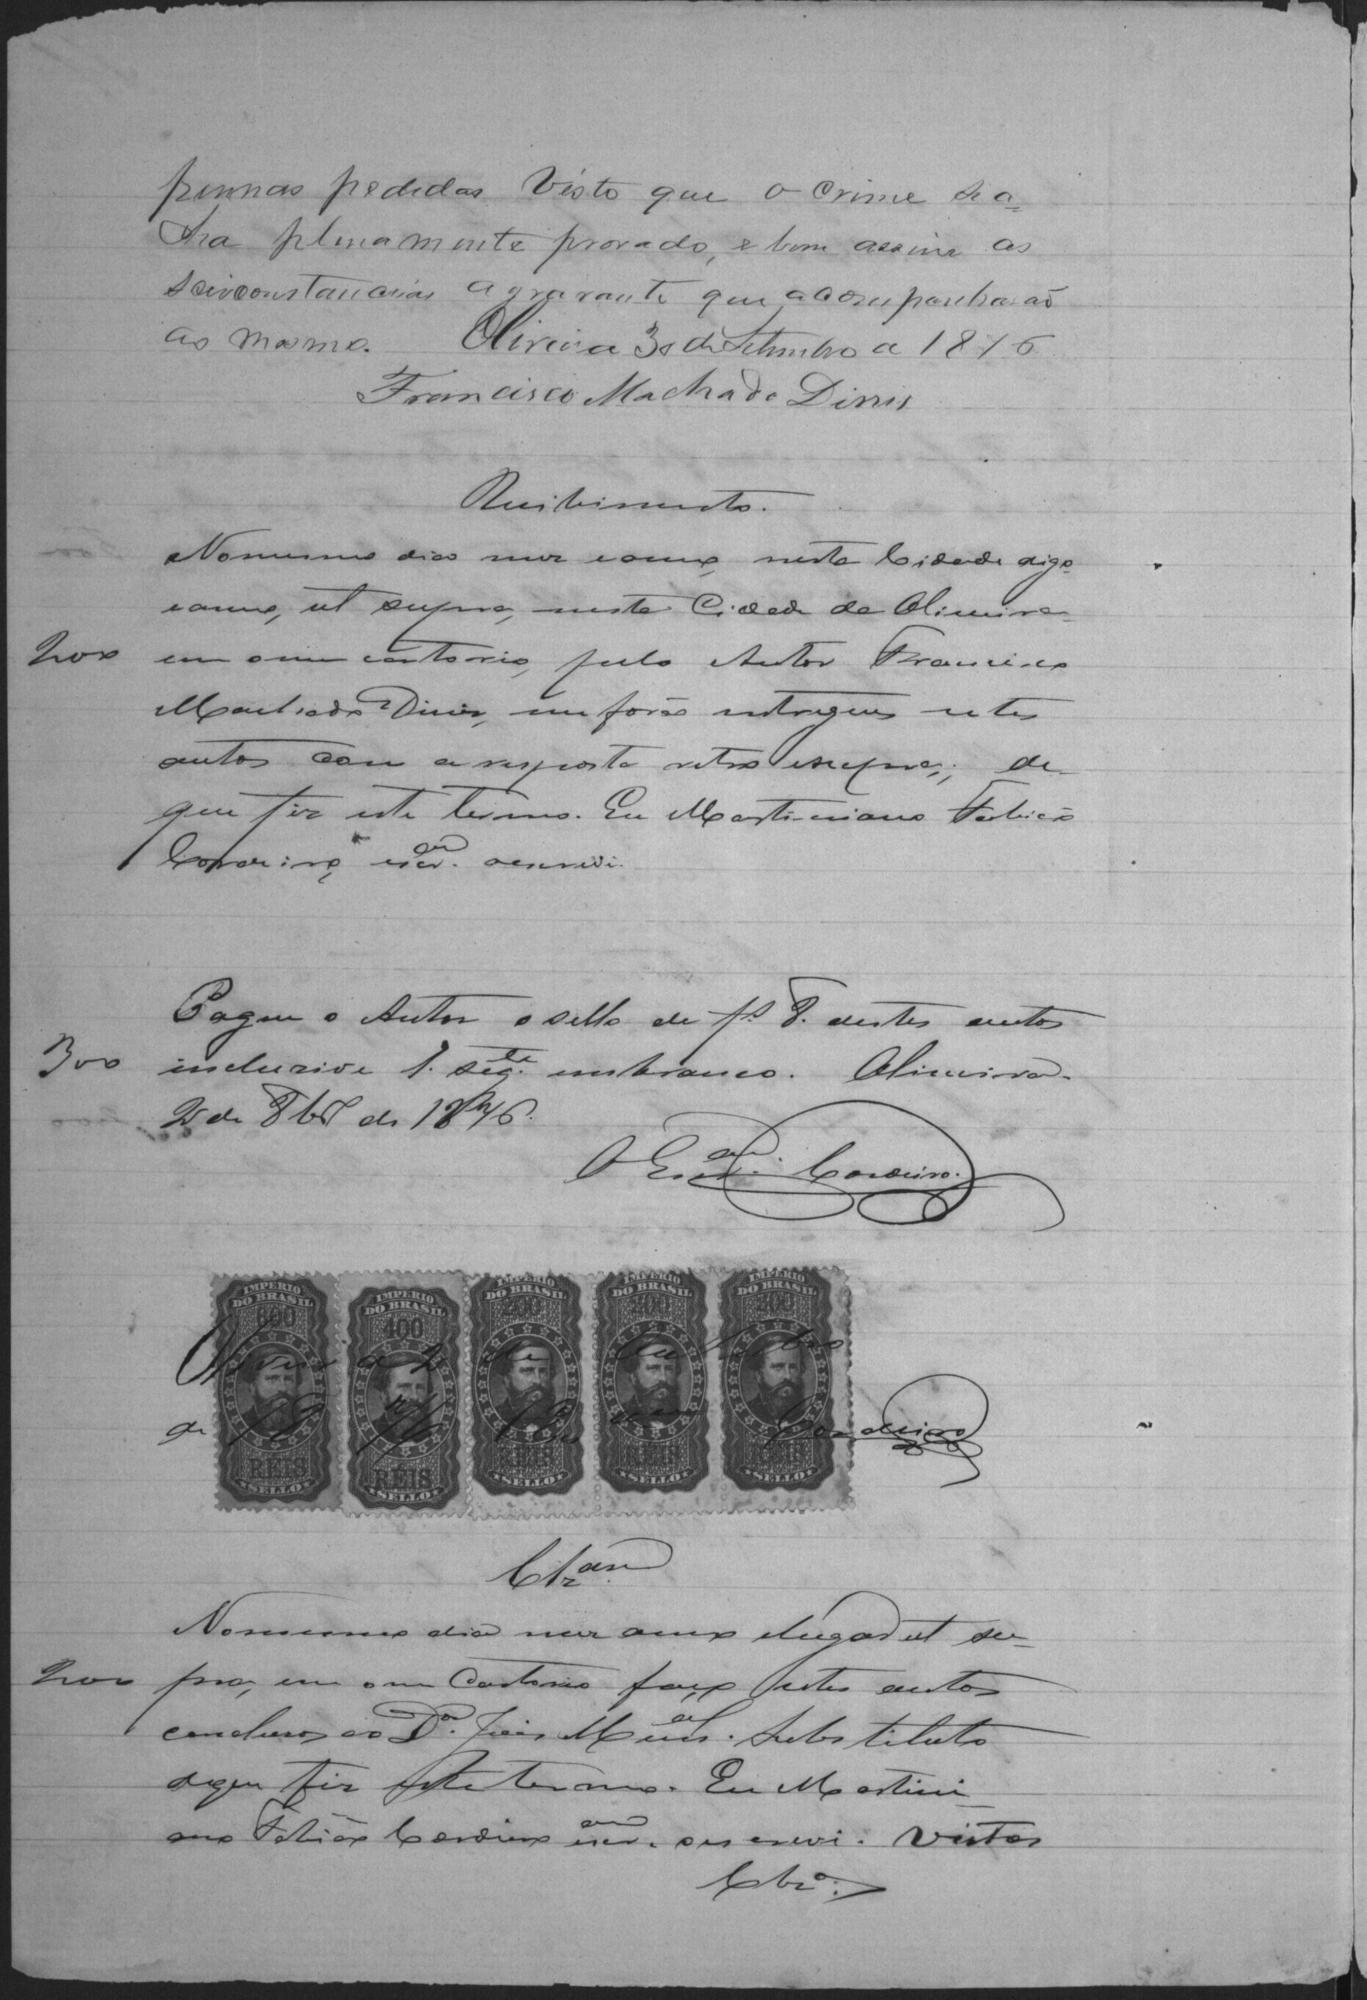 pennas pededas visto que o crime se a-
cha plenamente provado, e bem assim as
scirconstancias agravante que acompanharaõ
ao mesmo. Oliveira 30 de Setembro de 1876
Francisco Machado Dinis
Recibimento.
No mesmo dia mez e anno, nesta Cidade digo
e anno, ut supra, nesta Cidade de Oliveira
200 em o meu cartorio, pelo Autor Francisco
Machado Diniz, me foraõ entregues estes
autos com a resposta retro e supra; de
que fiz este termo. Eu Martiniano
Cordeiro, escr.am oescrevi.
Pague o Autor o sello de fs 8. destes autos
300 inclusive 1. seg.te em branco. Oliveira
2 de 8br de 1876.
O Escr.am Cordeiro.
IMPERIO DO BRASIL 600 REIS SELLO
IMPERIO DO BRASIL 400 REIS SELLO
IMPERIO DO BRASIL 200 REIS SELLO
IMPERIO DO BRASIL 200 REIS SELLO
IMPERIO DO BRASIL 200 REIS SELLO
Oliveira 2 de Outubro
de 1876 Cordeiro
Clzam
No mesmo dia mez anno e lugar ut su-
200 pra, em o meu Cartorio faço estes autos
concluzos ao Dor. Juis Mun.al Substituto
de que fiz este termo. Eu Martini
ano Cordeiro escr.am oescrevi. Vistos
Clzo.